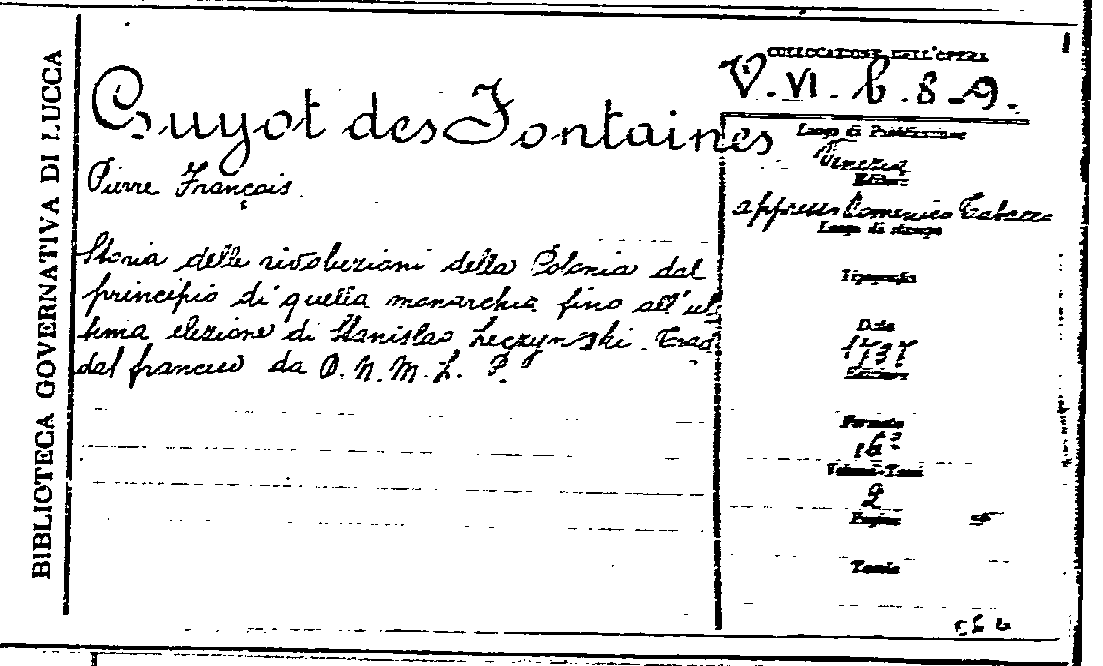 BIBLIOTECA GOVERNATIVA DI LUCCA
Guyot des Fontaines
Pierre François
Storia delle rivoluzioni della Polonia dal
principio di quella monarchia fino all'ul
tima elezione di Stanislao Leczynski. Trad.
dal francese da O. N. M. L. P.
COLLOCAZIONE DELL'OPERA
V. VI. b. 8-9.
Luogo di Pubblicazione
Venezia
appresso Domenico Tabacco
Luogo di stampa
Tipografia
Data
1737
Formato
16º
Volumi-Tomi
2
Pagine
Tavole